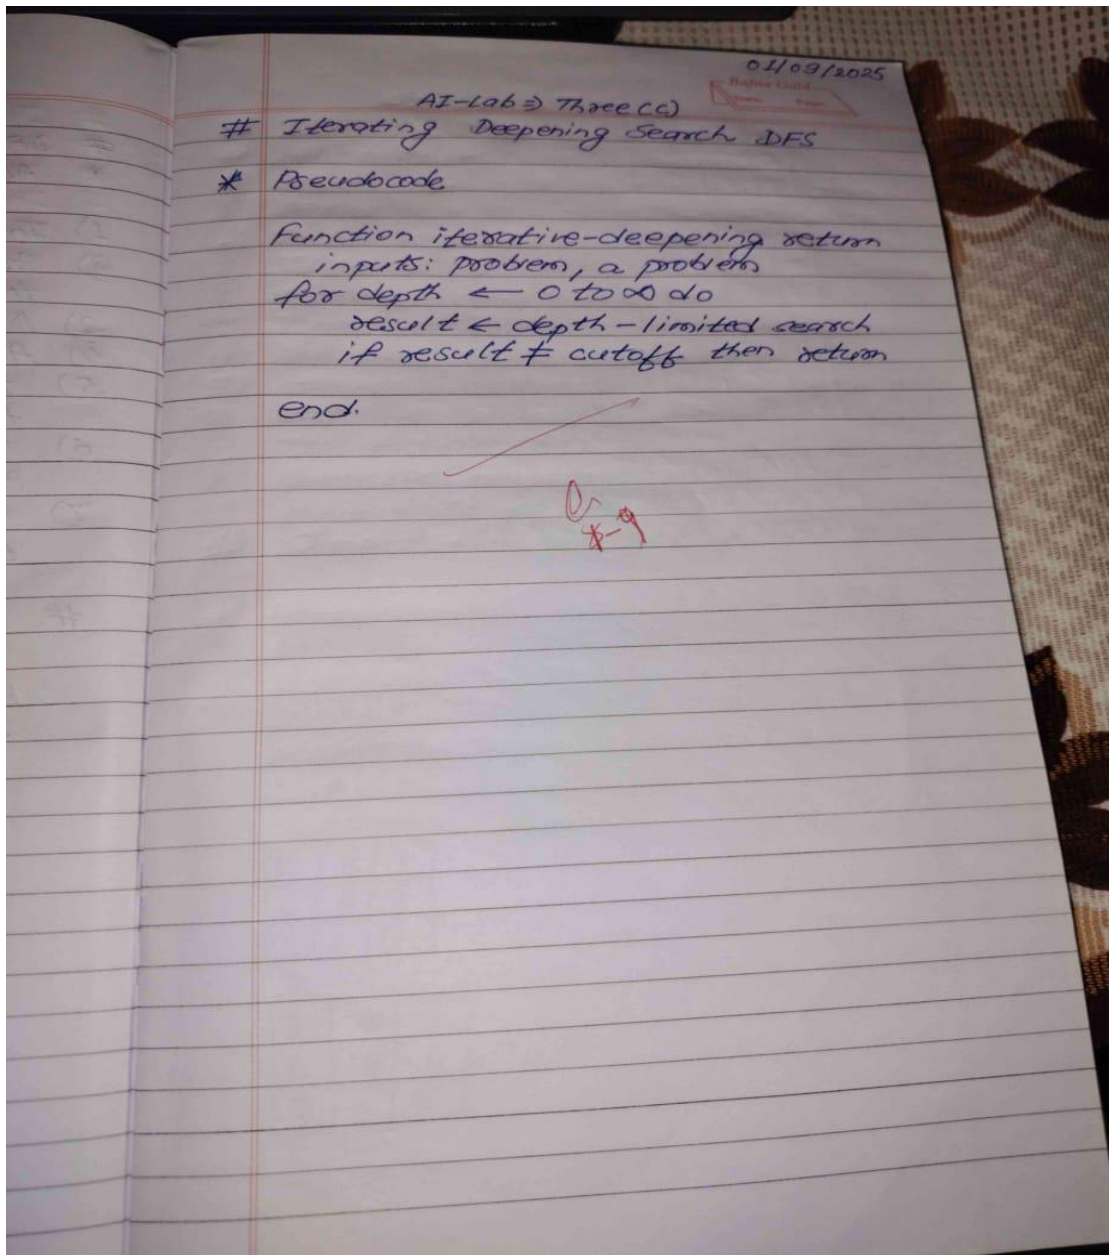 01/09/2025
AI-Lab ⇒ Three (c)
# Iterating Deepening Search DFS
* Pseudocode
Function iterative-deepening return
inputs: problem, a problem
for depth ← 0 to ∞ do
result ← depth-limited search
if result ≠ cutoff then return
end.